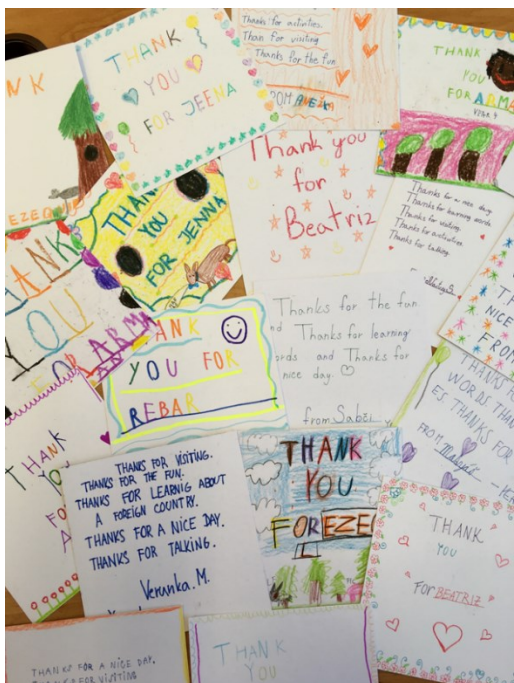 NK
EZEQ
THANK
YOU
FOR JEENA
Thanks for activities
Than for visiting
Thanks for the fun
THANK
YOU
FOR ARMA
Thank you
for
Beatriz
Thanks for a nice day
Thanks for learning words
Thanks for visiting
Thanks for activities
Thanks for talking.
THANK
YOU
FOR JENNA
ANK
YOU
FOR ARMA
ANK
YOU FOR
REBAR
Thanks for the fun
nd Thanks for learning
ords and Thanks for
nice day.
from Sabči
NICE
FROM
THANKS FO
WORDS THAN
ES THANKS FOR
FROM
THANK
YO
THANKS FOR VISITING.
THANKS FOR THE FUN.
THANKS FOR LEARNIG ABOUT
A FOREIGN COUNTRY.
THANKS FOR A NICE DAY.
THANKS FOR TALKING.
Verunka.M.
THANK
YOU
FOR EZE
THANK
YOU
FOR BEATRIZ
THANKS FOR A NICE DAY.
THANKS FOR VISITING
THANK
YOU